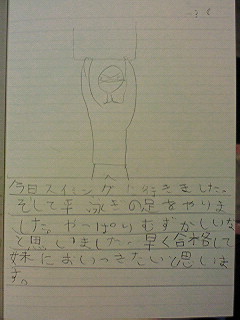 今日スイミングに行きました。
そして平泳ぎの足をやりま
した。やっぱりむずかしいな
と思いました。早く合格して
妹においつきたいと思いま
す。